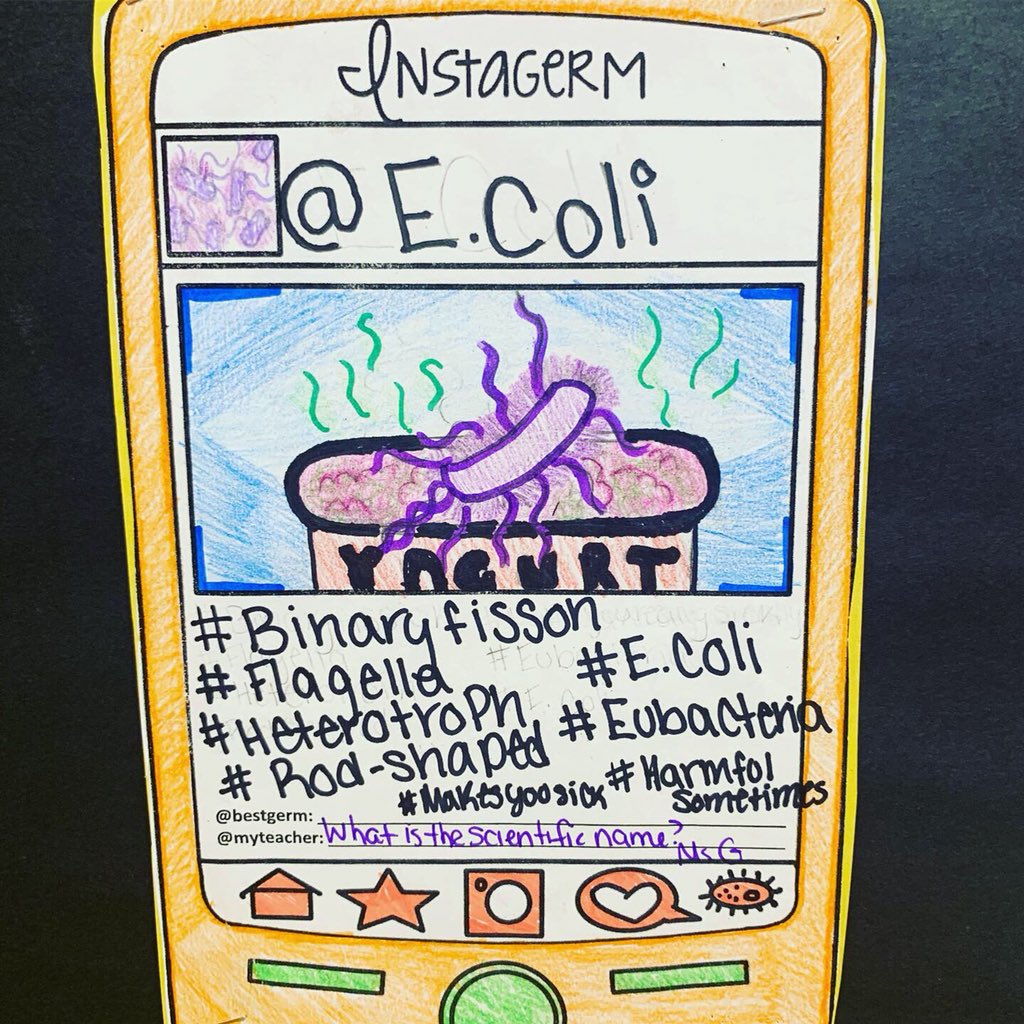 INSTAGERM
@E.Coli
YOGURT
#Binaryfisson
#Flagella #E.Coli
#Heterotroph #Eubacteria
#Rod-shaped #Harmfol
#Makesyoosick sometimes
@bestgerm:
@myteacher: What is the scientific name?
Ms G